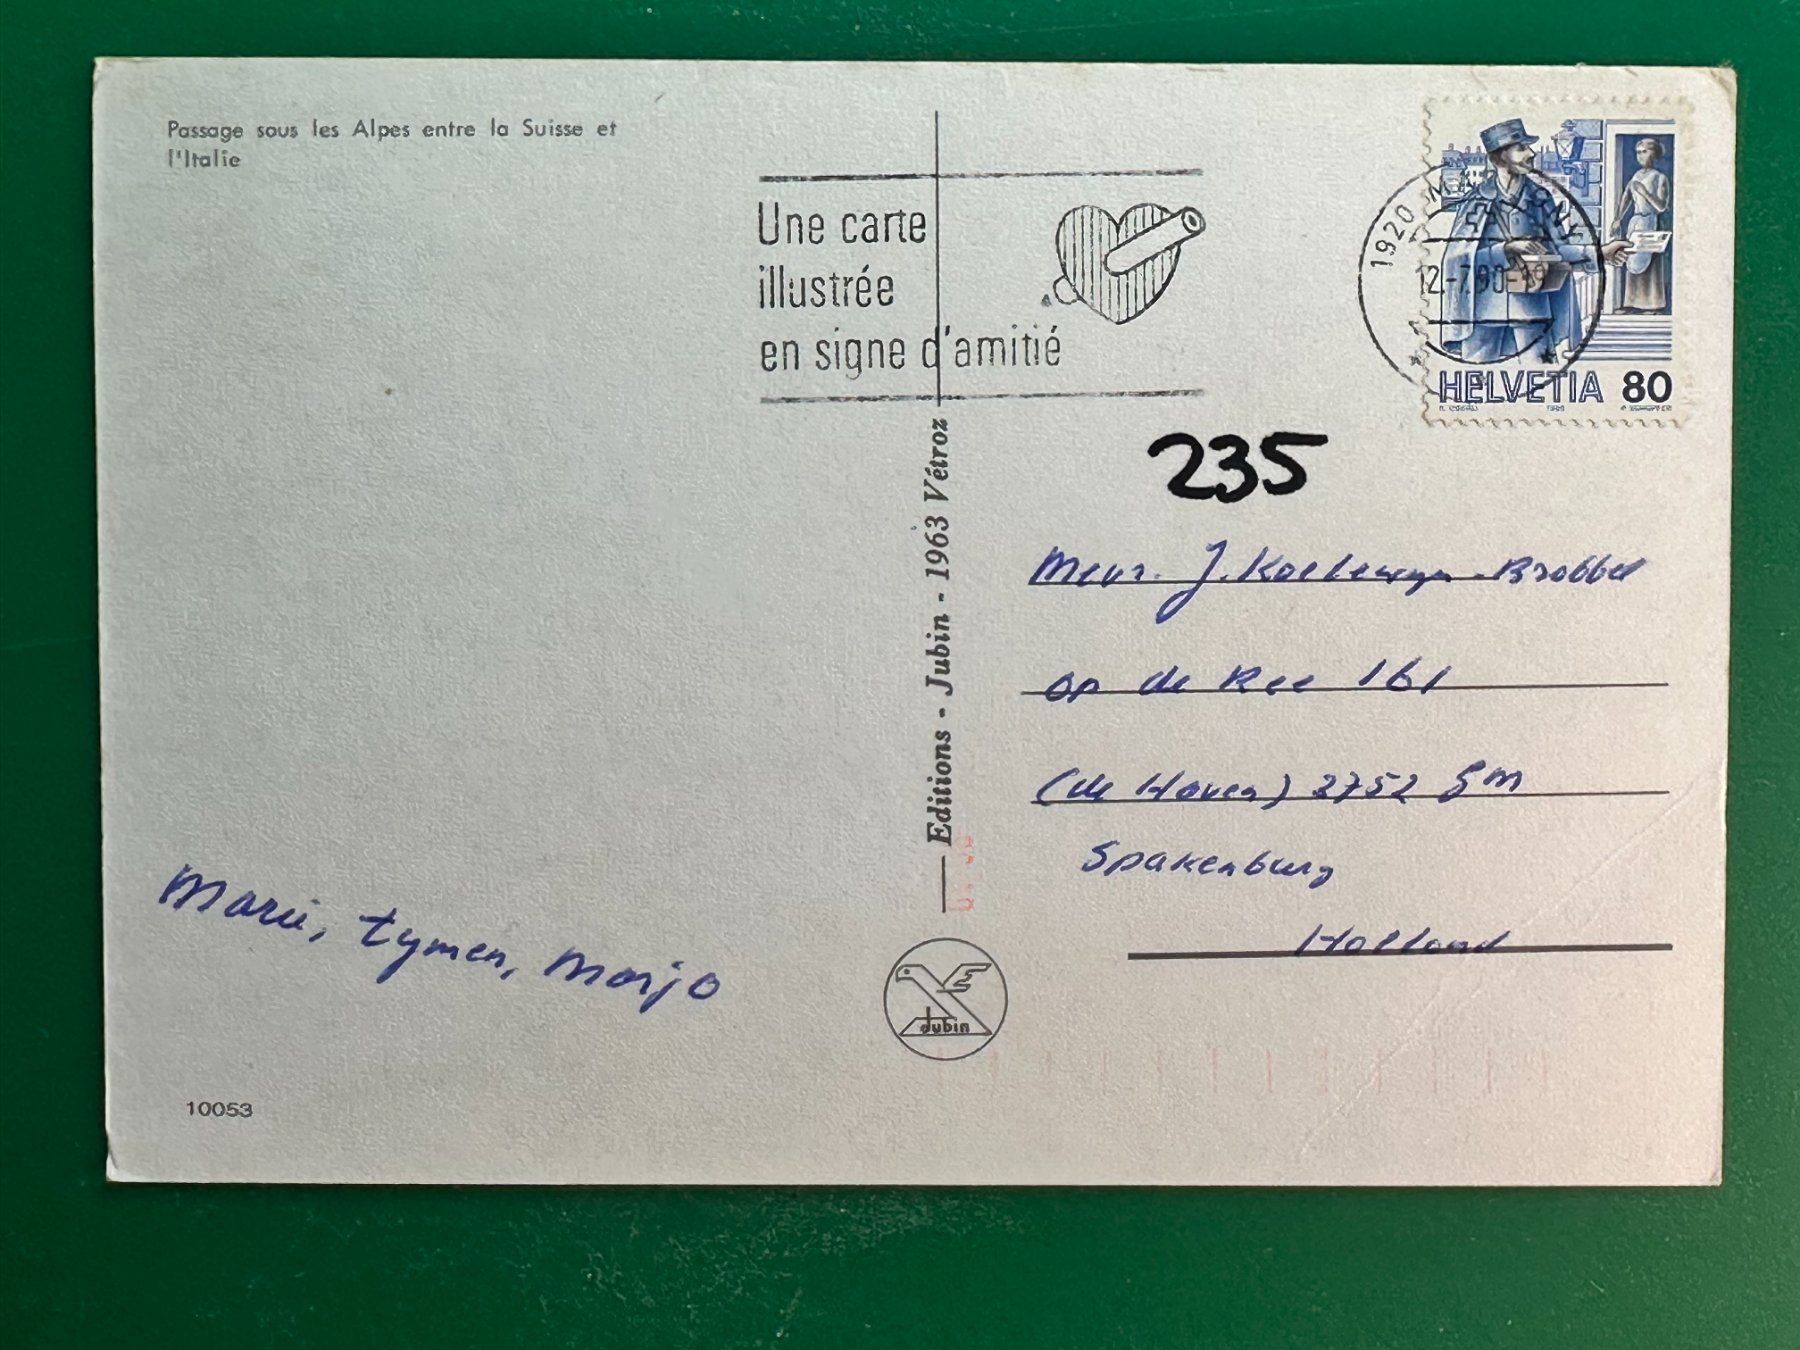 Passage sous les Alpes entre la Suisse et
l'Italie
Une carte
illustrée
en signe d'amitié
1920 MARTIGNY
12.-7.90-19
HELVETIA 80
235
Editions - Jubin - 1963 Vétroz
Mevr. J. Koelewyn-Brobbel
op de Ree 161
(de Haven) 3752 GM
Spakenburg
Holland
Marii, tymen, Marjo
Jubin
10053